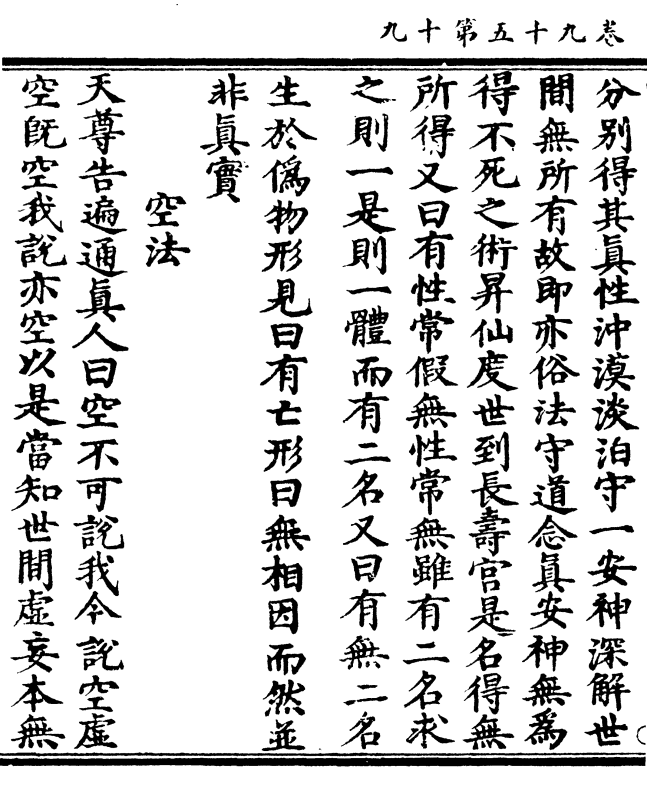 卷九十五第十九
分別得其眞性沖漠淡泊守一安神深解世
間無所有故即亦俗法守道念眞安神無爲
得不死之術昇仙度世到長壽宮是名得無
所得又曰有性常假無性常無雖有二名求
之則一是則一體而有二名又曰有無二名
生於僞物形見曰有亡形曰無相因而然並
非眞實
空法
天尊告遍通眞人曰空不可說我今說空虛
空旣空我說亦空以是當知世間虛妄本無